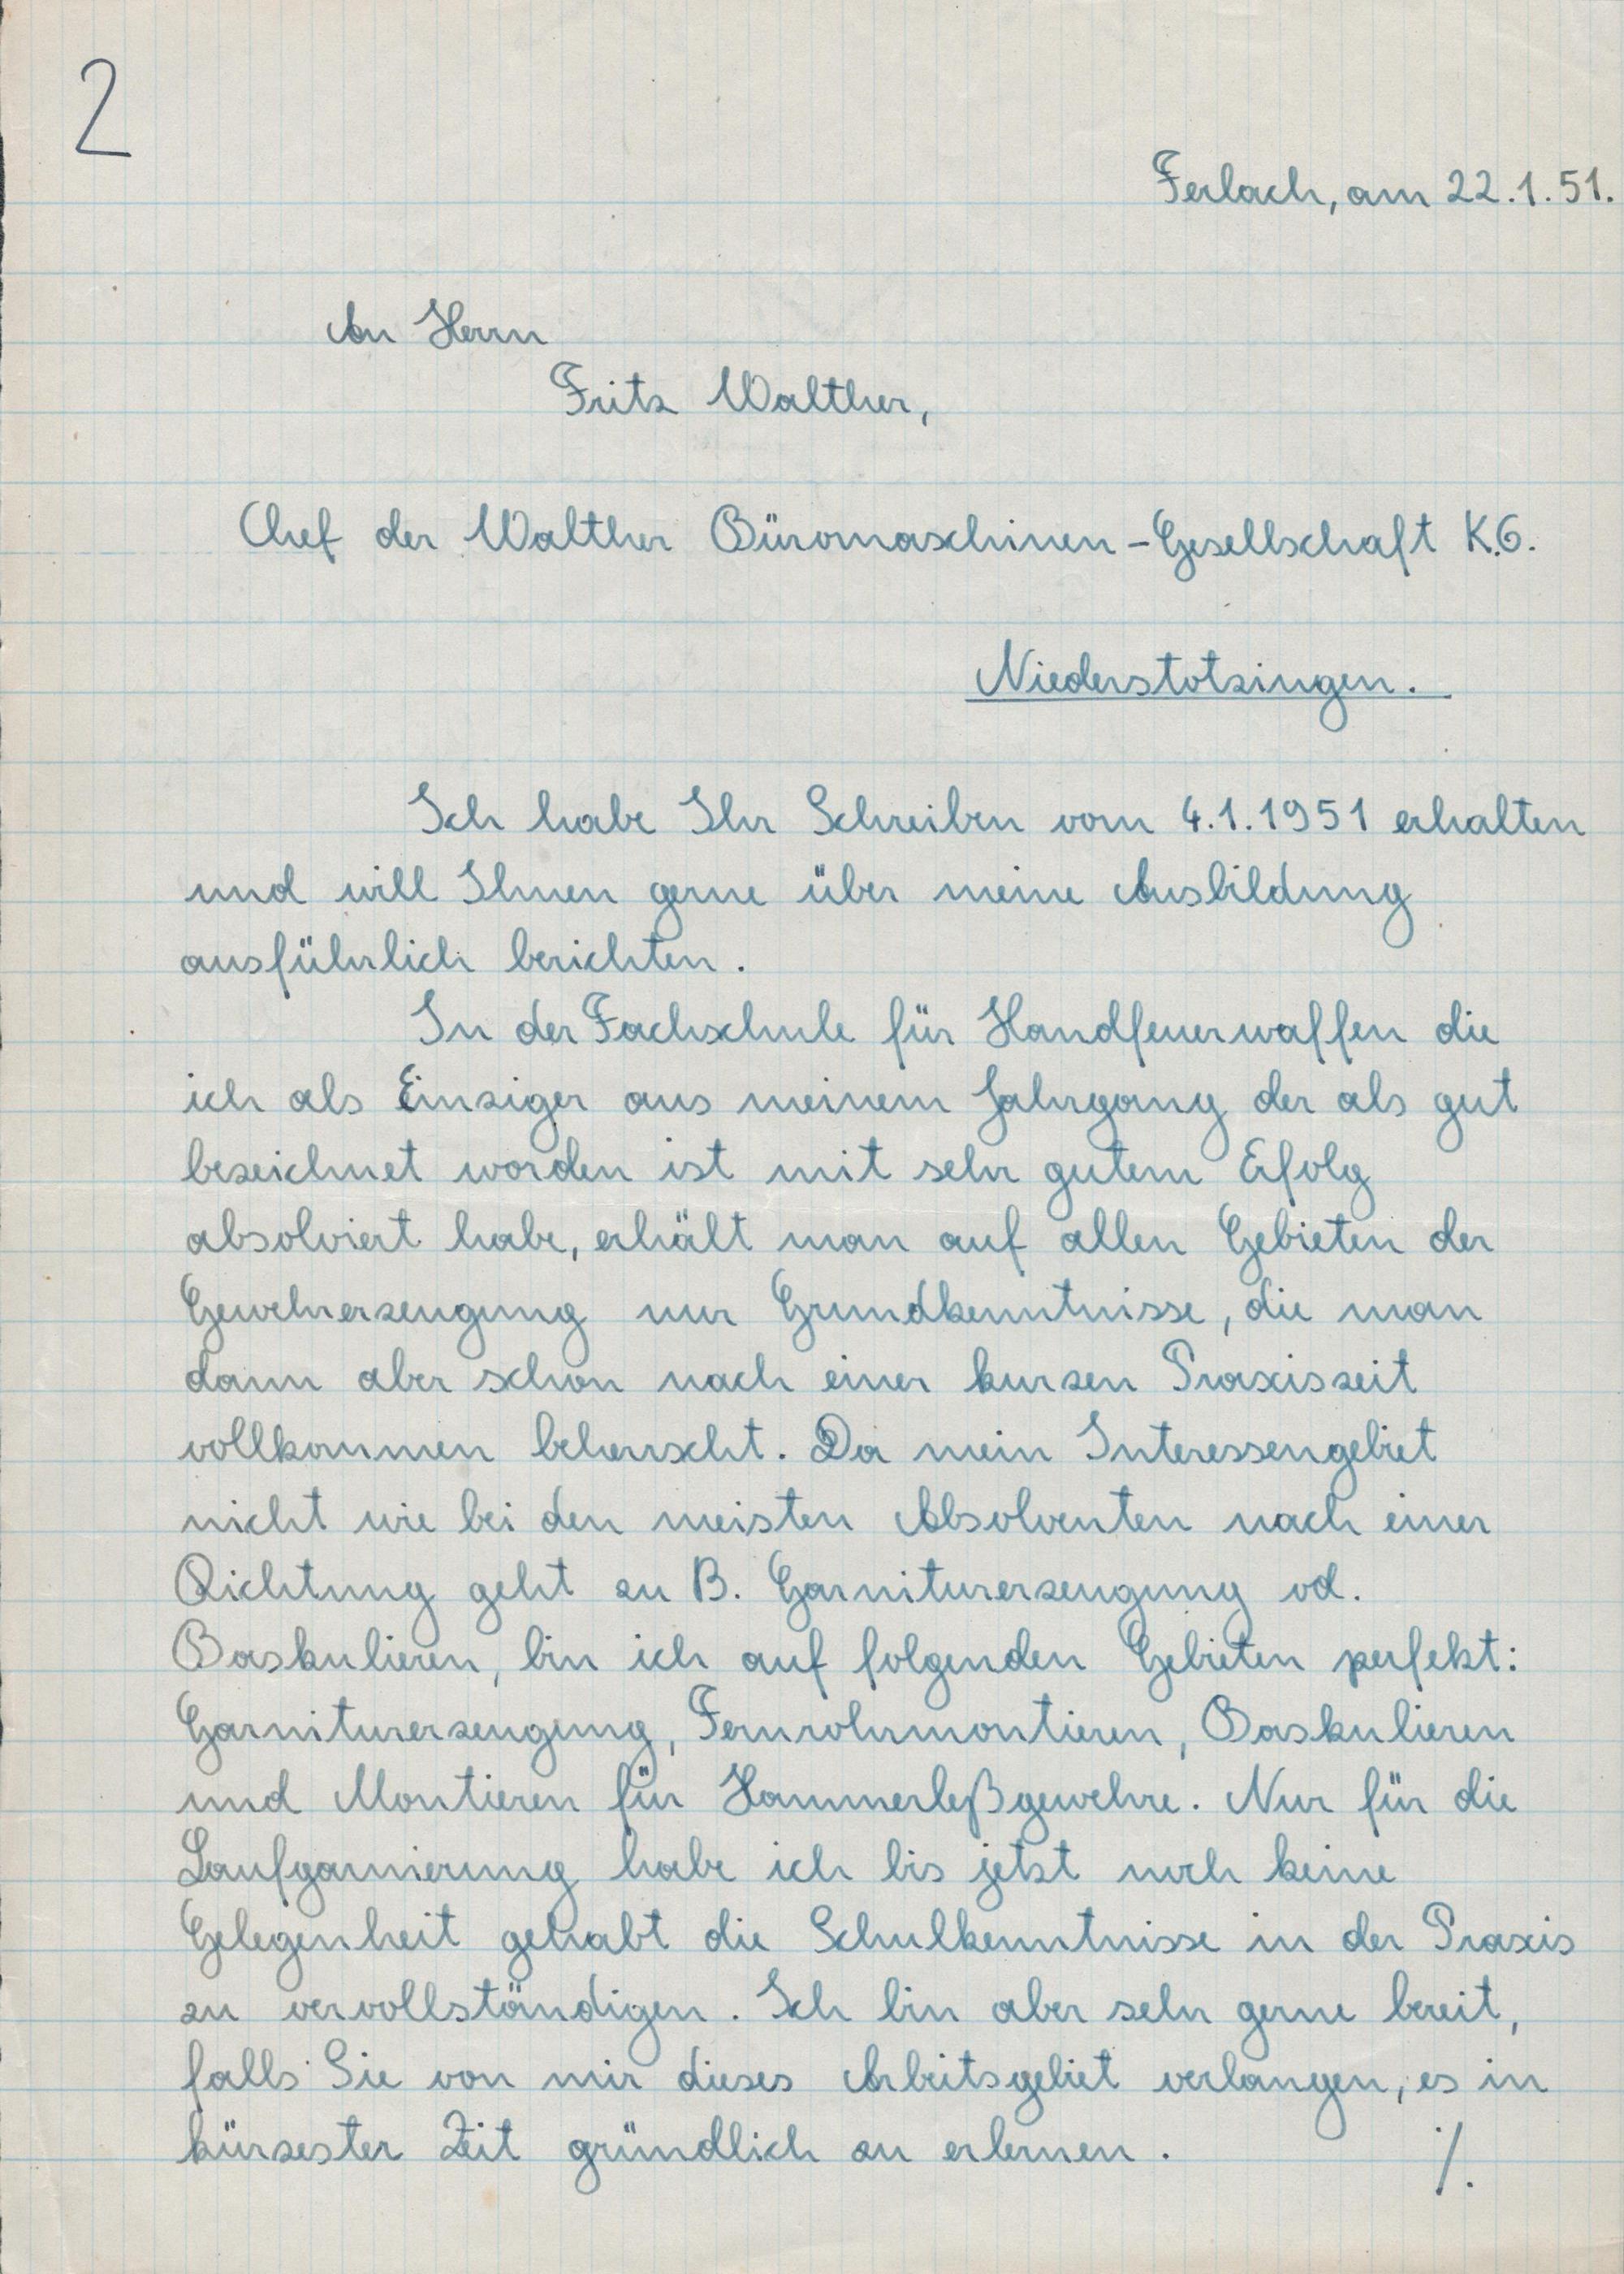 2
Ferlach, am 22.1.51.
An Herrn
Fritz Walther,
Chef der Walther Büromaschinen-Gesellschaft K.G.
Niederstotzingen.
Ich habe Ihr Schreiben vom 4.1.1951 erhalten
und will Ihnen gerne über meine Ausbildung
ausführlich berichten.
In der Fachschule für Handfeuerwaffen die
ich als Einziger aus meinem Jahrgang der als gut
bezeichnet worden ist mit sehr gutem Erfolg
absolviert habe, erhält man auf allen Gebieten der
Gewehrerzeugung nur Grundkenntnisse, die man
dann aber schon nach einer kurzen Praxiszeit
vollkommen beherrscht. Da mein Interessengebiet
nicht wie bei den meisten Absolventen nach einer
Richtung geht zu B. Garniturerzeugung od.
Baskulieren, bin ich auf folgenden Gebieten perfekt:
Garniturerzeugung, Fernrohrmontieren, Baskulieren
und Montieren für Hammerleßgewehre. Nur für die
Laufgarnierung habe ich bis jetzt noch keine
Gelegenheit gehabt die Schulkenntnisse in der Praxis
zu vervollständigen. Ich bin aber sehr gerne bereit,
falls Sie von mir dieses Arbeitsgebiet verlangen, es in
kürzester Zeit gründlich zu erlernen.
/.